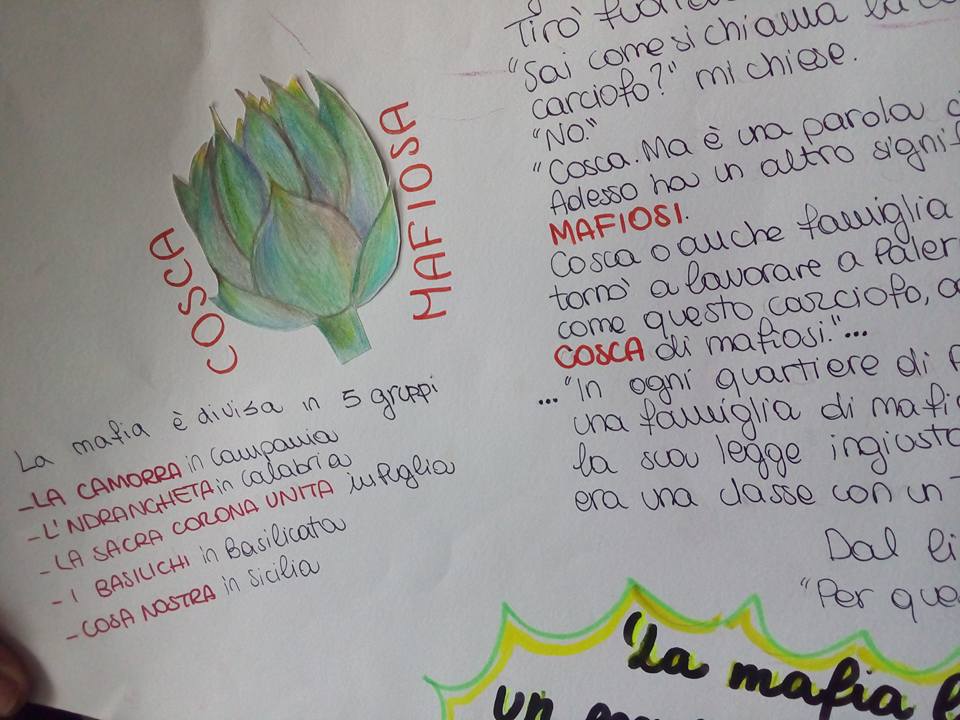 COSCA
MAFIOSA
La mafia è divisa in 5 gruppi
-LA CAMORRA in Campania
-L'NDRANGHETA in Calabria
-LA SACRA CORONA UNITA in Puglia
-I BASILICHI in Basilicata
-COSA NOSTRA in Sicilia
Tirò
"Sai come si chiama
carciofo?" mi chiese.
"NO."
"Cosca. Ma è una parola
Adesso ha un altro
MAFIOSI.
Cosca o anche famiglia
tornò a lavorare a
come questo carciofo,
COSCA di mafiosi."...
..."In ogni quartiere di
una famiglia di
la sua legge ingiusta
era una classe con un
Dal
"Per
"La mafia
un